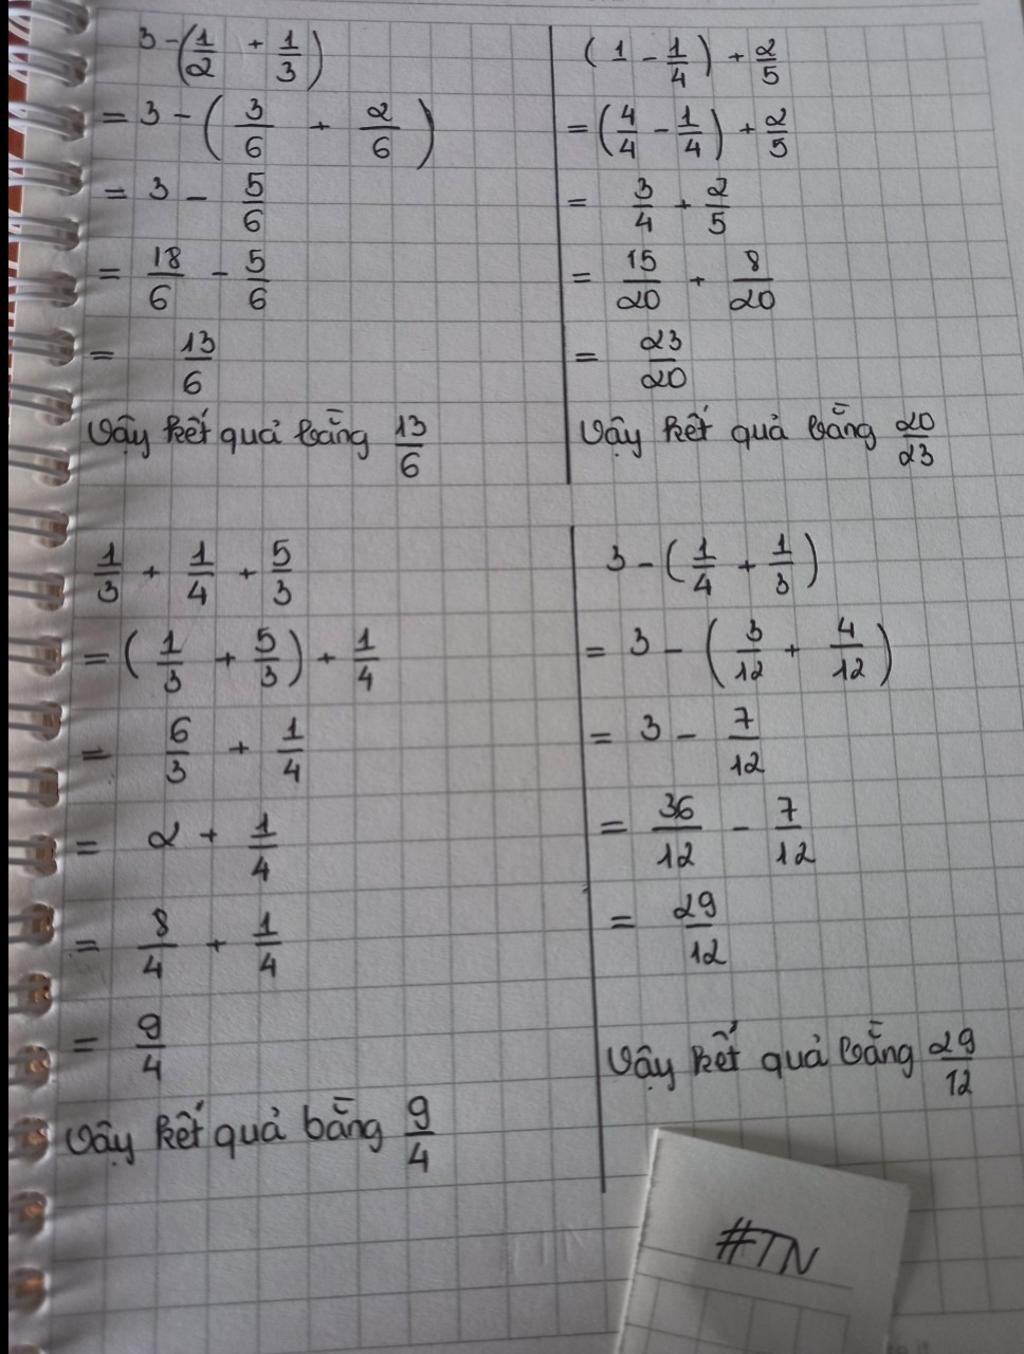 3 - (1/2 + 1/3)
= 3 - (3/6 + 2/6)
= 3 - 5/6
= 18/6 - 5/6
= 13/6
Vậy kết quả bằng 13/6
(1 - 1/4) + 2/5
= (4/4 - 1/4) + 2/5
= 3/4 + 2/5
= 15/20 + 8/20
= 23/20
Vậy kết quả bằng 20/23
1/3 + 1/4 + 5/3
= (1/3 + 5/3) + 1/4
= 6/3 + 1/4
= 2 + 1/4
= 8/4 + 1/4
= 9/4
Vậy kết quả bằng 9/4
3 - (1/4 + 1/3)
= 3 - (3/12 + 4/12)
= 3 - 7/12
= 36/12 - 7/12
= 29/12
Vậy kết quả bằng 29/12
#TN